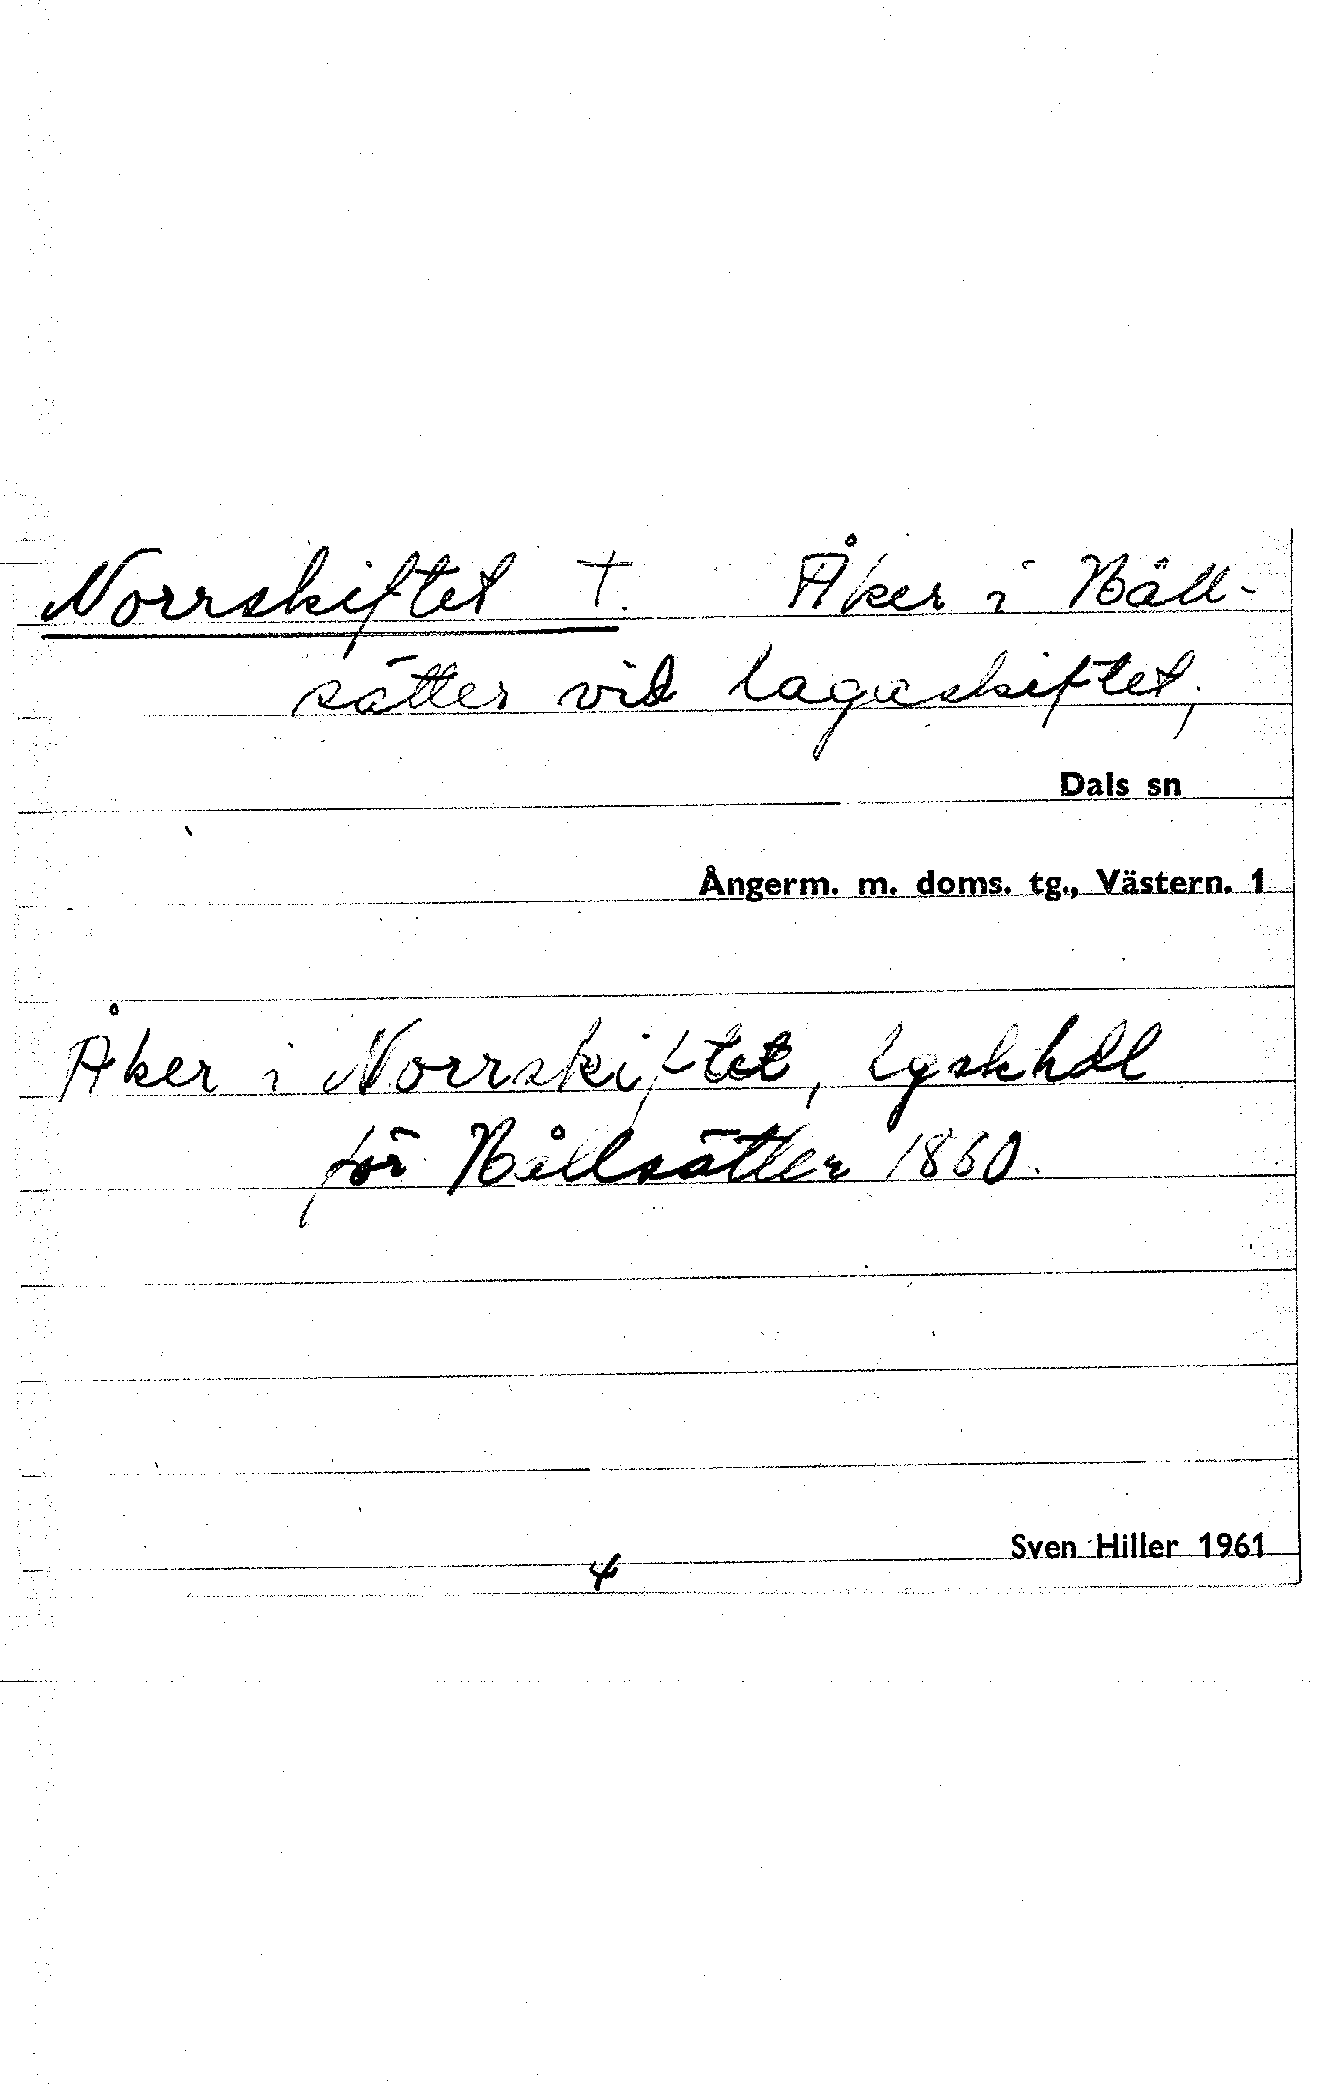 Norrskiftet †. Åker i Båll-
sätter vid lagaskiftet,
Dals sn
Ångerm. m. doms. tg., Västern. 1
Åker i Norrskiftet, lgskhdl
för Bållsätter 1860.
Sven Hiller 1961
4